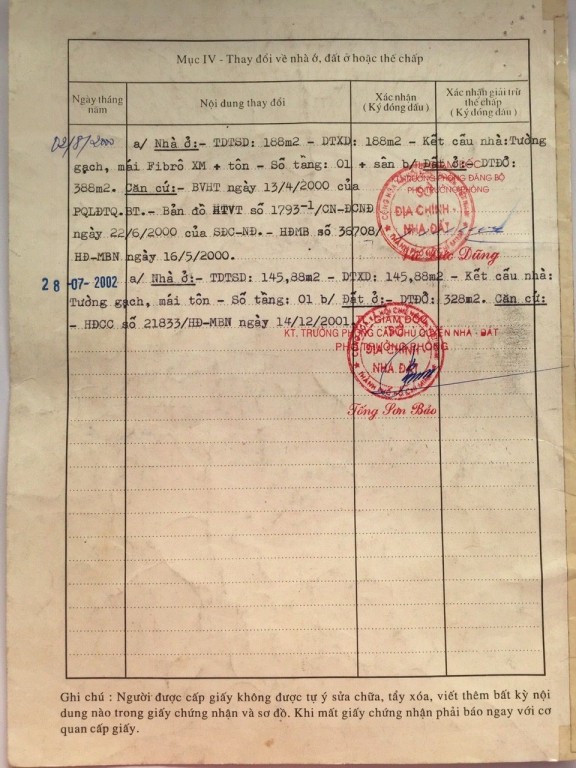 Mục IV - Thay đổi về nhà ở, đất ở hoặc thế chấp
Ngày tháng năm
Nội dung thay đổi
Xác nhận
( Ký đóng dấu )
Xác nhận giải trừ thế chấp
( Ký đóng dấu )
02/8/2000
a/ Nhà ở:- TDTSD: 188m2 - DTXD: 188m2 - Kết cấu nhà:Tường
gạch, mái Fibrô XM + tôn - Số tầng: 01 + sân b/ Đất ở:- DTĐỞ:
388m2. Căn cứ:- BVHT ngày 13/4/2000 của
PQLĐTQ.BT.- Bản đồ HTVT số 1793-1/CN-ĐCNĐ
ngày 22/6/2000 của SĐC-NĐ.- HĐMB số 36708/
HĐ-MBN ngày 16/5/2000.
TRƯỞNG PHÒNG ĐĂNG BỘ
PHÓ TRƯỞNG PHÒNG
SỞ
ĐỊA CHÍNH
NHÀ ĐẤT
Đức Dũng
28-07-2002
a/ Nhà ở:- TDTSD: 145,88m2 - DTXD: 145,88m2 - Kết cấu nhà:
Tường gạch, mái tôn - Số tầng: 01 b/ Đất ở:- DTĐỞ: 328m2. Căn cứ:
- HĐCC số 21833/HĐ-MBN ngày 14/12/2001.
GIÁM ĐỐC
KT. TRƯỞNG PHÒNG CẤP CHỦ QUYỀN NHÀ - ĐẤT
PHÓ TRƯỞNG PHÒNG
SỞ
ĐỊA CHÍNH
NHÀ ĐẤT
THÀNH PHỐ HỒ CHÍ MINH
Tống Sơn Bảo
Ghi chú : Người được cấp giấy không được tự ý sửa chữa, tẩy xóa, viết thêm bất kỳ nội
dung nào trong giấy chứng nhận và sơ đồ. Khi mất giấy chứng nhận phải báo ngay với cơ
quan cấp giấy.